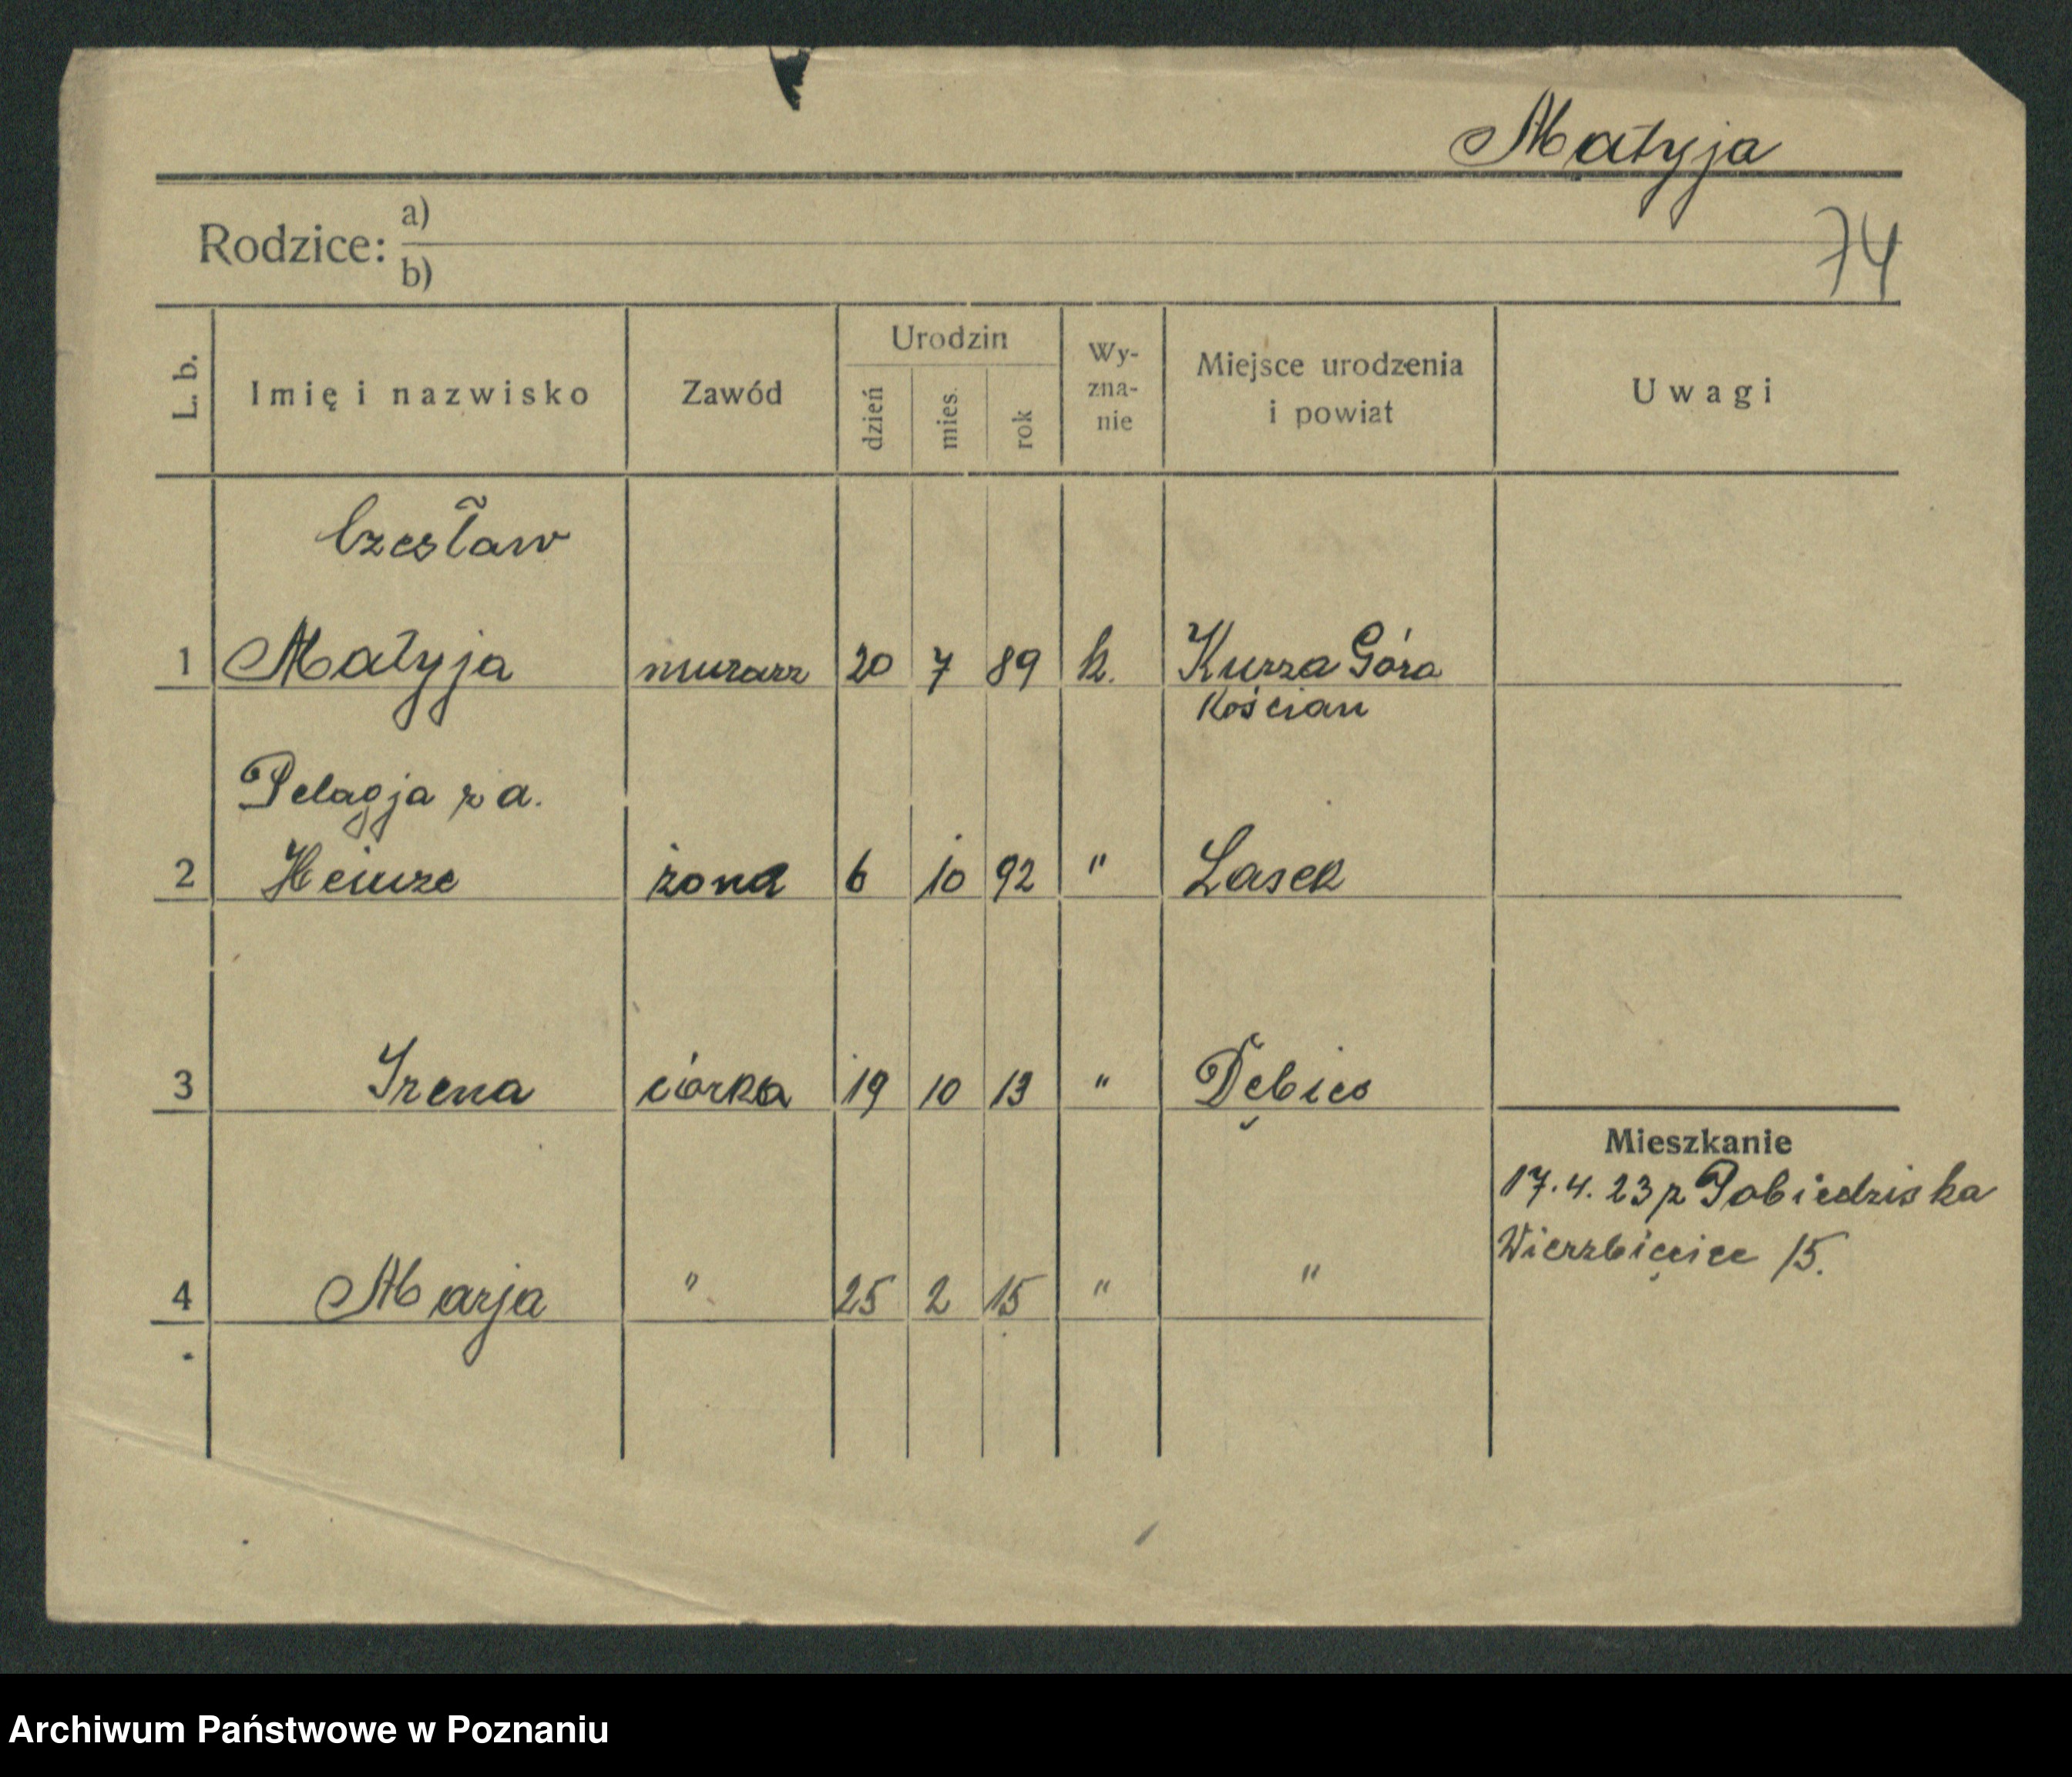 Matyja
74
Rodzice: a)
b)
L. b. Imię i nazwisko Zawód Urodzin dzień mies. rok Wy-zna-nie Miejsce urodzenia i powiat Uwagi
Czesław
1 Matyja murarz 20 7 89 k. Kurza Góra
Kościan
Pelagja z d.
2 Heinze żona 6 10 92 " Lasek
3 Irena córka 19 10 13 " Dębiec
Mieszkanie
17.4.23 z Pobiedziska
Wierzbięcice 15.
4 Marja " 25 2 15 " "
Archiwum Państwowe w Poznaniu